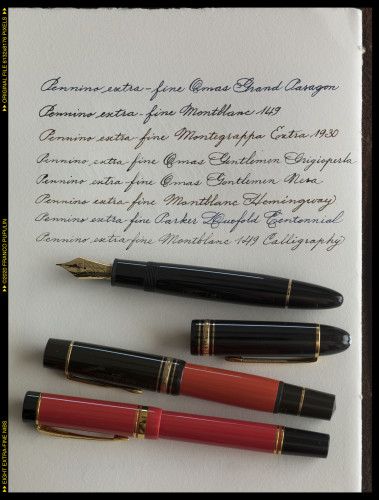 Pennino extra-fine Omas Grand Paragon
Pennino extra-fine Montblanc 149
Pennino extra-fine Montegrappa Extra 1930
Pennino extra fine Omas Gentlemen Grigioperla
Pennino extra-fine Omas Gentlemen Nera
Pennino extra fine Montblanc Hemingway
Pennino extra-fine Parker Duofold Centennial
Pennino extra-fine Montblanc 149 Calligraphy
ORIGINAL FILE 6132x8176 PIXELS
©2020 FRANCO PUPULIN
EIGHT EXTRA-FINE NIBS